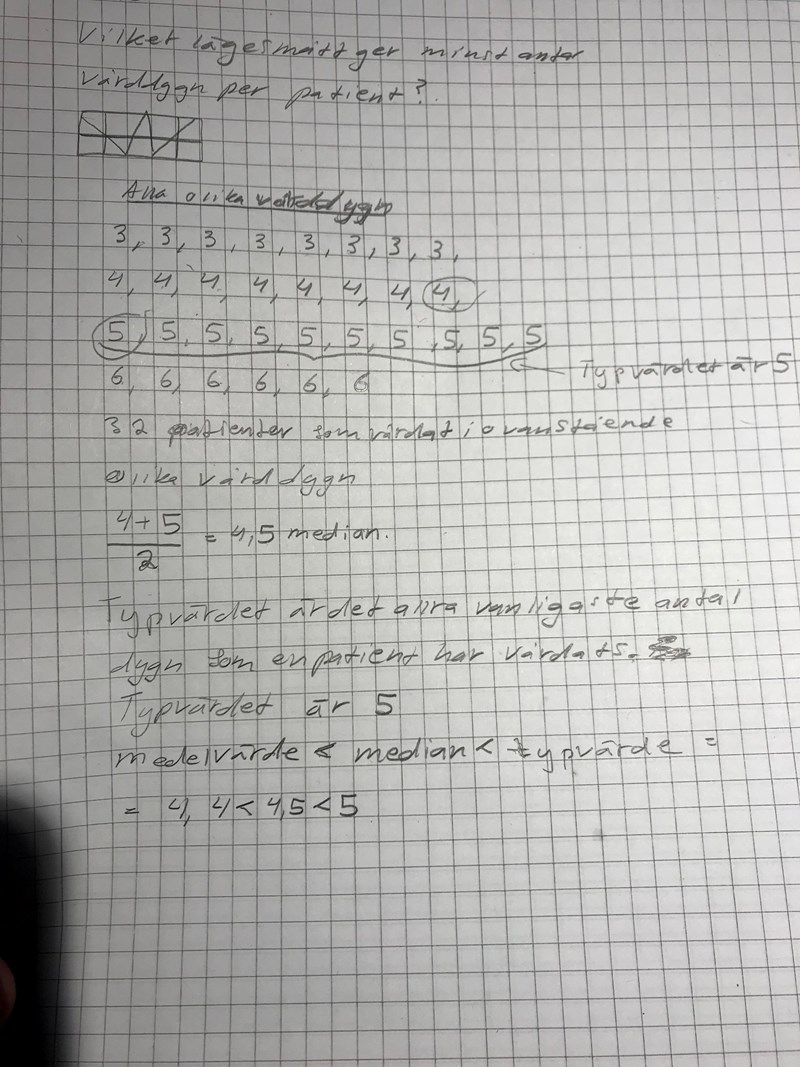 Vilket lägesmått ger minst antal
vårddygn per patient?
Alla olika vårddygn
3, 3, 3, 3, 3, 3, 3, 3,
4, 4, 4, 4, 4, 4, 4, 4,
5, 5, 5, 5, 5, 5, 5, 5, 5, 5
Typvärdet är 5
6, 6, 6, 6, 6, 6
32 patienter som vårdat i ovanstående
olika vårddygn
4+5/2 = 4,5 median.
Typvärdet är det allra vanligaste antal
dygn som en patient har vårdats.
Typvärdet är 5
medelvärde < median < typvärde =
= 4,4 < 4,5 < 5